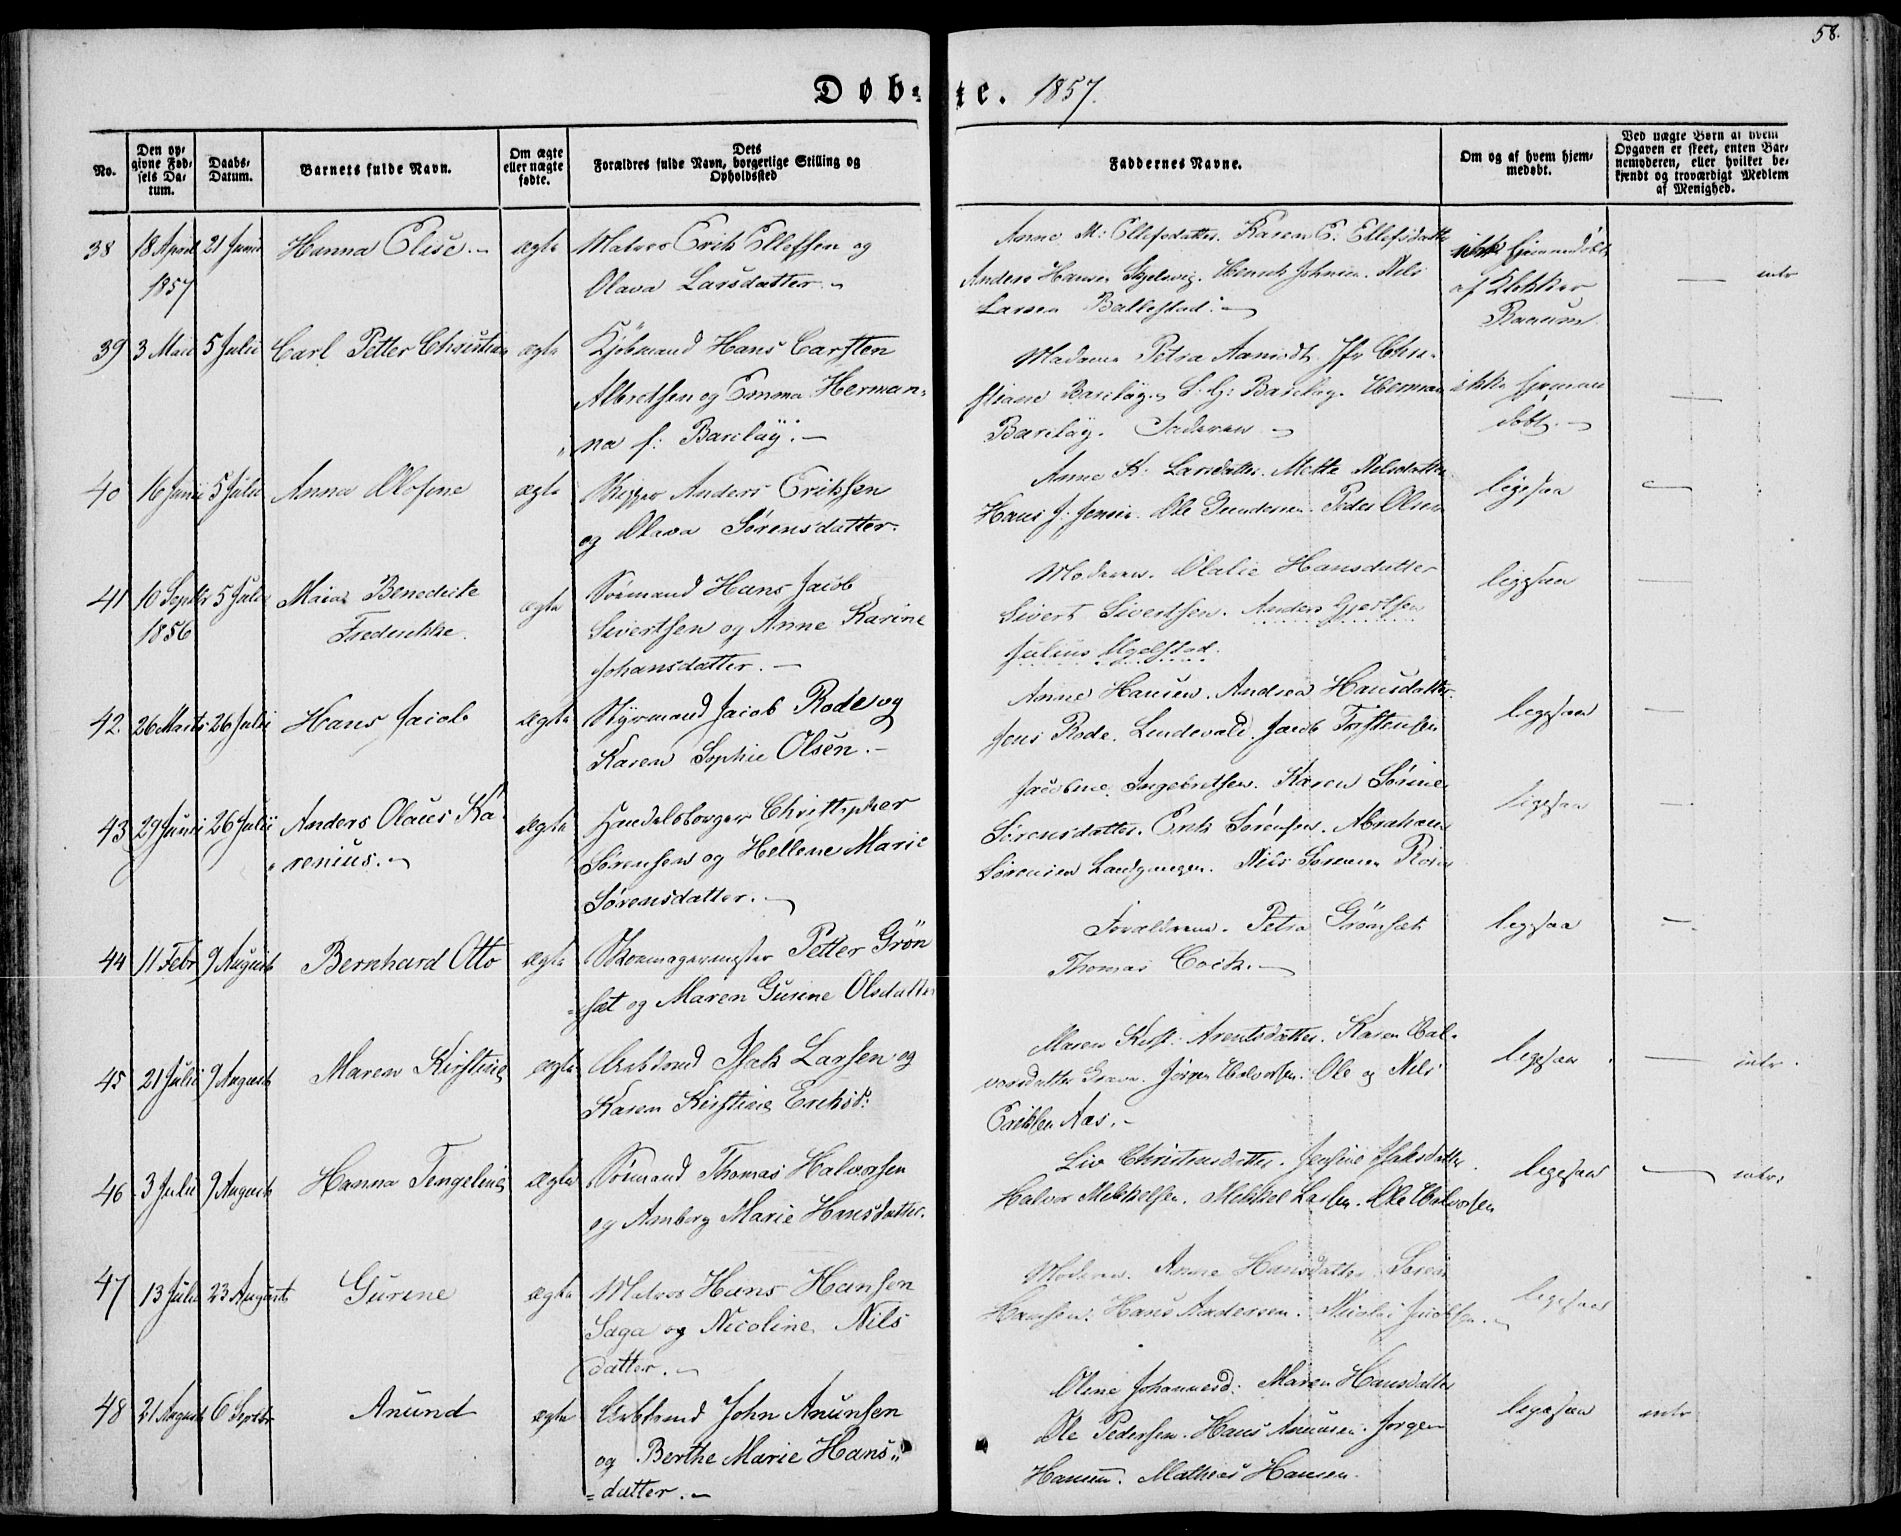 58.
Døb- te. 1857.
No.
Den op-
givne Fød-
sels Da-
tum.
Daabs-
Datum.
Barnets fulde Navn.
Om ægte
eller uægte
fødte.
Dets
Forældres fulde Navn, borgerlige Stilling og
Opholdssted
Faddernes Navne.
Om og af hvem hjem-
medøbt.
Ved uægte Børn af hvem
Opgaven er skeet, enten Bar-
nemoderen, eller hvilket be-
kjendt og troværdigt Medlem
af Menighed.
38 18 April 21 Junii Hanna Elise. ægte Matros Erik Ellefsen og
1857 Olava Larsdatter.
Anne M: Ellefsdatter. Karen E: Ellefsdatter
Anders Hansen Henrik Johnsen. Nils
Larsen Ballestad.
ikke hjemmedøbt
af Klokker
Raaum
intr
39 3 Mai 5 Julii Carl Petter Christian ægte Kjøbmand Hans Carsten
Albretsen og Emma Herman-
na f: Barclay.
Madame Petra Jfr Chri-
stiane Barclay. S. G: Barclay. Herman
Barclay. Faderen
ikke hjemme
døbt.
40 16 Junii 5 Julii Anna Olofine ægte Skipper Anders Eriksen
og Olava Sørensdatter.
Anne K. Larsdatter. Mette Nilsdatter
Hans J. Jensen. Ole Gundersen. Peder Olsen
ligesaa
41 10 Septbr 5 Julii Maia Benedicte ægte Sømand Hans Jacob
1856 Frederikke. Sivertsen og Anne Karine
Johansdatter.
Moderen. Olalie Hansdatter
Sivert Sivertsen. Anders Gjertsen
Julius Ugelstad.
ligesaa
42. 26 Marts 26 Julii Hans Jacob ægte Styrmand Jacob Rode og
Karen Sophie Olsen.
Anne Hansen. Andrea Hansdatter.
Jens Rode. Lindevald. Jacob Torstensen
ligesaa
43 29 Junii 26 Julii Anders Olaus Ka- ægte Handelsborger Christopher
renius. Sørensen og Hellene Marie
Sørensdatter.
Jacobine Ingebretsen. Karen Sørine
Sørensdatter. Erik Sørensen. Abraham
Sørensen Landgangen. Nils Sørensen
ligesaa
44 11 Febr 9 August Bernhard Otto ægte Skomagermester Petter Grøn
sæt og Maren Gurine Olsdatter
Forældrene. Petra Grønsæt
Thomas Cock.
ligesaa
45 21 Julii 9 August Maren Kirstine ægte Arbsmd Isak Larsen og
Karen Kirstine Eriksd:
Maren Kirst. Arentsdatter. Karen Hal-
vorsdatter Grava. Jørgen Halvorsen. Ole og Nils
Eriksen Aas.
ligesaa intr.
46 3 Julii 9 August Hanna Tengeline ægte Sømand Thomas Halvorsen
og Amberg Marie Hansdatter.
Liv Christensdatter. Jensine Isaksdatter.
Halvor Mikkelsen. Mikkel Larsen. Ole Halvorsen
ligesaa intr.
47 13 Julii 23 August Gurine ægte Matros Hans Hansen
Saga og Nicoline Nils
datter.
Moderen. Anne Hansdatter. Søren
Hansen. Hans Andersen. Nicolai Jacobsen.
ligesaa
48 21 August 6 Septbr Anund ægte Arbsmd John Anunsen
og Berthe Marie Hans-
datter.
Oline Johannesd: Maren Hansdatter
Ole Pedersen. Hans Anunsen. Jørgen
Hansen. Mathias Hansen.
ligesaa intr